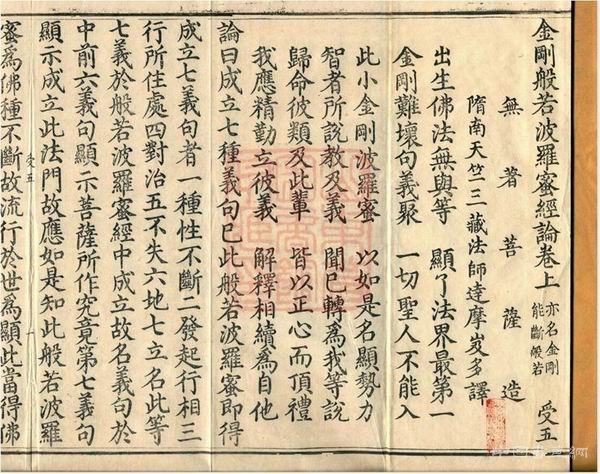 金剛般若波羅蜜經論卷上 亦名金剛能斷般若 受五
無著菩薩造
隋南天竺三藏法師達摩岌多譯
出生佛法無與等 顯了法界最第一
金剛難壞句義聚 一切聖人不能入
此小金剛波羅蜜 以如是名顯勢力
智者所說教及義 聞已轉為我等說
歸命彼類及此輩 皆以正心而頂禮
我應精勤立彼義 解釋相續為自他
論曰成立七種義句已此般若波羅蜜即得
成立七義句者一種性不斷二發起行相三
行所住處四對治五不失六地七立名此等
七義於般若波羅蜜經中成立故名義句於
中前六義句顯示菩薩所作究竟第七義句
顯示成立此法門故應如是知此般若波羅
受五
蜜為佛種不斷故流行於世為顯此當得佛